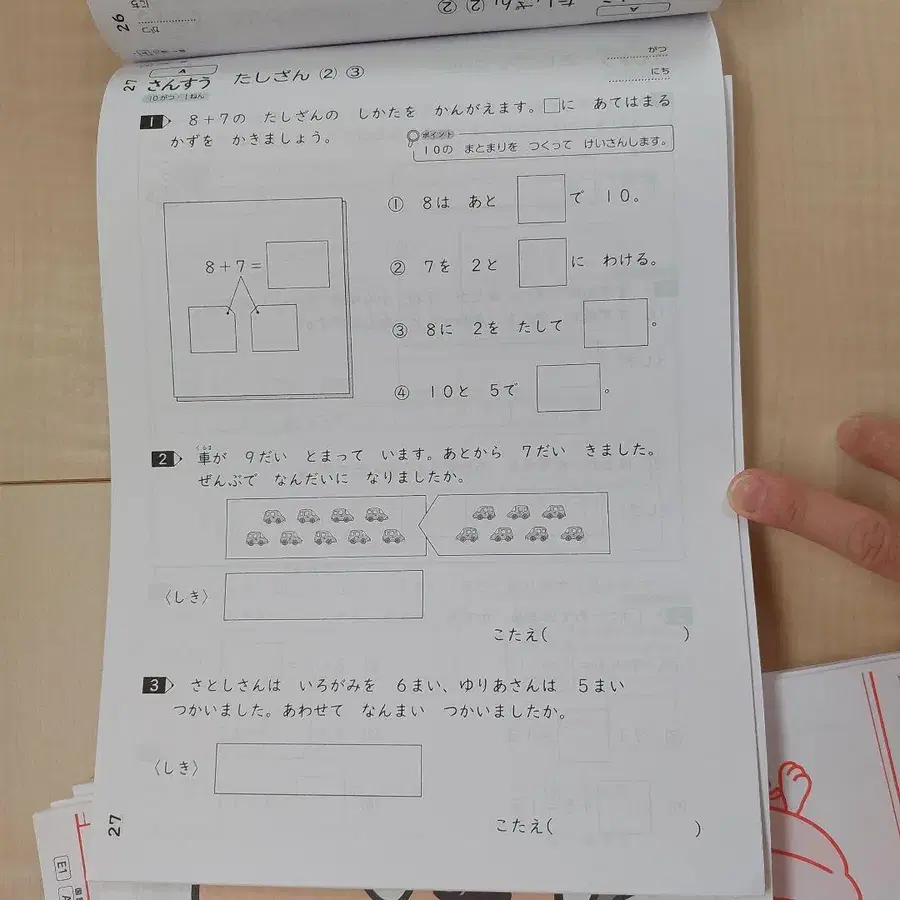 26
たしざん (2) ②
27
A
さんすう たしざん (2) ③
10がつ 1ねん
がつ
にち
1 8+7の たしざんの しかたを かんがえます。□に あてはまる
かずを かきましょう。
ポイント
10の まとまりを つくって けいさんします。
8+7=
① 8は あと □で 10。
② 7を 2と □に わける。
③ 8に 2を たして □。
④ 10と 5で □。
2 車が 9だい とまって います。あとから 7だい きました。
くるま
ぜんぶで なんだいに なりましたか。
〈しき〉
こたえ( )
3 さとしさんは いろがみを 6まい、ゆりあさんは 5まい
つかいました。あわせて なんまい つかいましたか。
〈しき〉
こたえ( )
27
E1